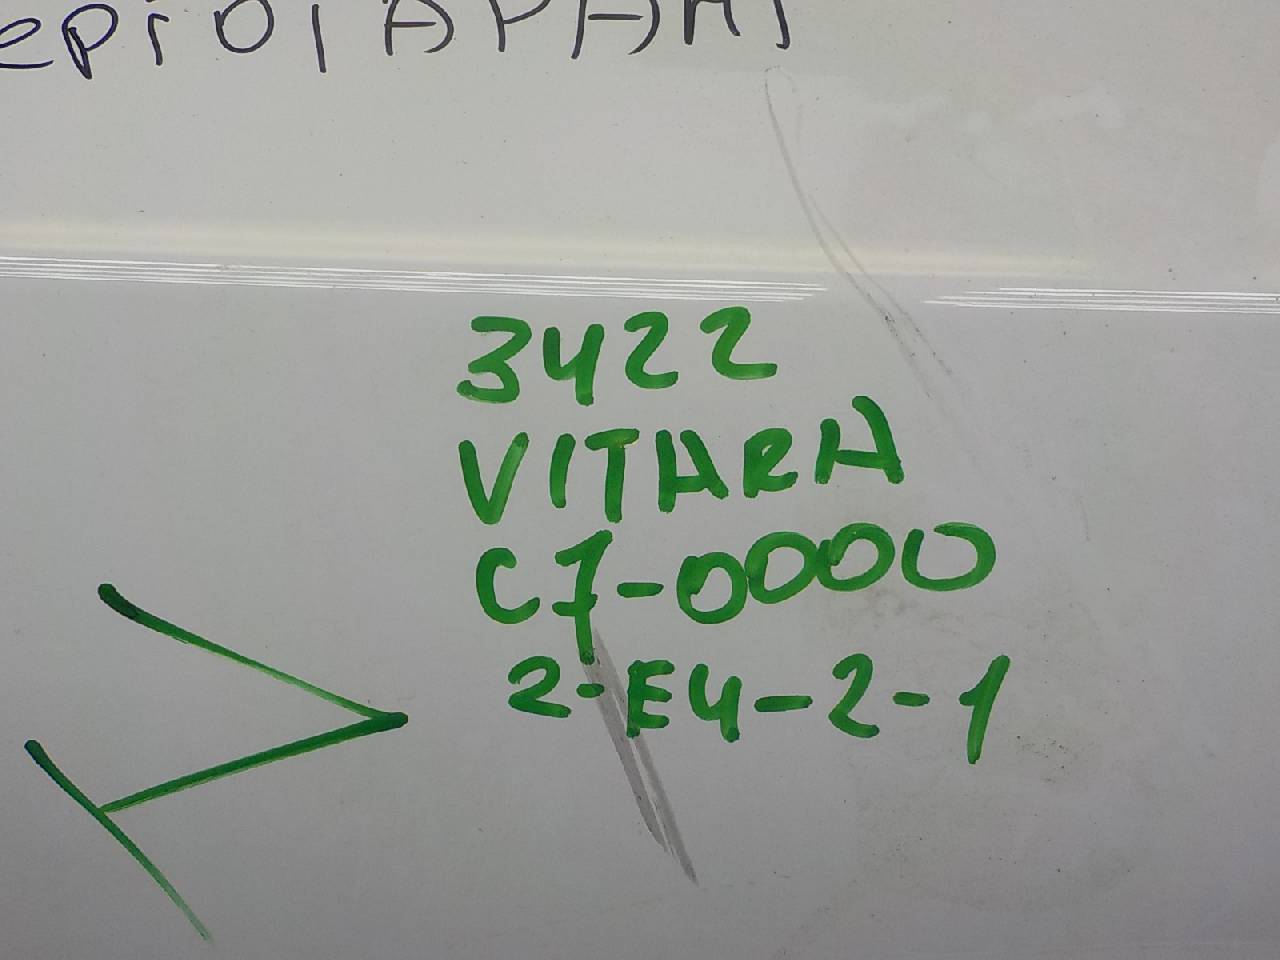 3422
VITARA
C7-0000
2-E4-2-1